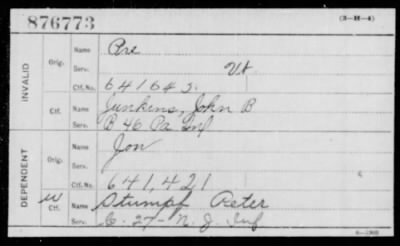 876773
(3-H-4)
INVALID
Orig. Name Pre
Serv. Vt
Ctf. No. 641645.
Ctf. Name Junkins, John B
Serv. B 46 Pa Inf
DEPENDENT
Orig. Name Jon
Serv.
Ctf. No. 641,421
W Ctf. Name Stumpf Peter
Serv. C. 27 - N. J. Inf